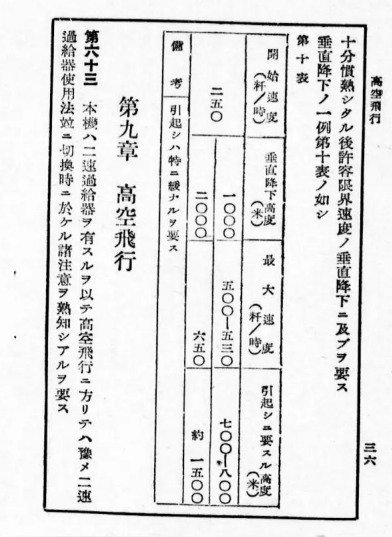 高空飛行
三六
十分慣熟シタル後許容限界速度ノ垂直降下ニ及ブヲ要ス
垂直降下ノ一例第十表ノ如シ
第十表
開始速度(粁/時)
垂直降下高度(米)
最大速度(粁/時)
引起シニ要スル高度(米)
二五〇
一〇〇〇
五〇〇—五三〇
七〇〇—八〇〇
二〇〇〇
六五〇
約一五〇〇
備考
引起シハ特ニ緩ナルヲ要ス
第九章 高空飛行
第六十三 本機ハ二速過給器ヲ有スルヲ以テ高空飛行ニ方リテハ豫メ二速
過給器使用法竝ニ切換時ニ於ケル諸注意ヲ熟知シアルヲ要ス